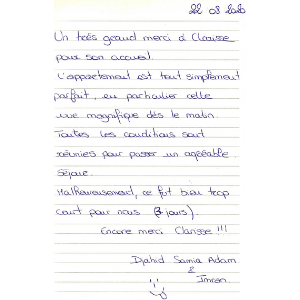 22 03 2020
Un très grand merci à Clarisse
pour son accueil.
L'appartement est tout simplement
parfait, en particulier cette
vue magnifique dès le matin.
Toutes les conditions sont
réunies pour passer un agréable
séjour.
Malheureusement, ce fut bien trop
court pour nous (3 jours).
Encore merci Clarisse !!!
Djahid Samia Adam
&
Imran